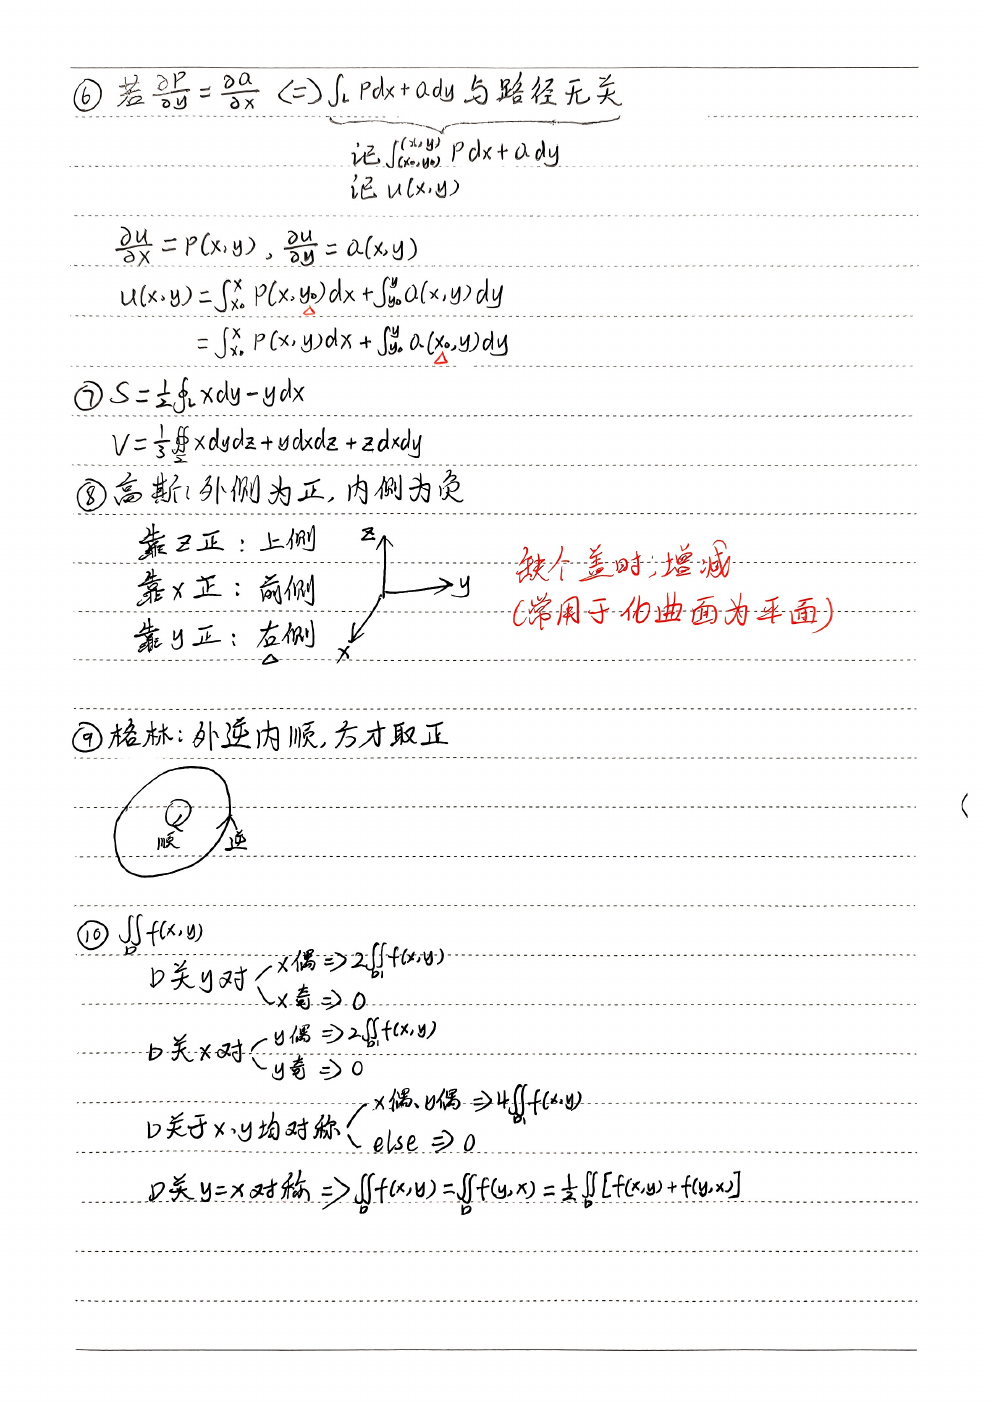 ⑥ 若 ∂P/∂y = ∂Q/∂x <=> ∫_L Pdx+Qdy 与路径无关
记 ∫_(x₀,y₀)^(x,y) Pdx+Qdy
记 u(x,y)
∂u/∂x = P(x,y), ∂u/∂y = Q(x,y)
u(x,y) = ∫_x₀^x P(x,y₀)dx + ∫_y₀^y Q(x,y)dy
= ∫_x₀^x P(x,y)dx + ∫_y₀^y Q(x₀,y)dy
⑦ S = 1/2 ∮_L xdy - ydx
V = 1/3 ∯_Σ xdydz + ydxdz + zdxdy
⑧ 高斯: 外侧为正, 内侧为负
靠z正: 上侧
靠x正: 前侧
靠y正: 右侧
z
y
x
缺个盖时: 增减
(常用于化曲面为平面)
⑨ 格林: 外逆内顺, 方才取正
顺
逆
⑩ ∬_D f(x,y)
D关y对
x偶 => 2∬_D₁ f(x,y)
x奇 => 0
D关x对
y偶 => 2∬_D₁ f(x,y)
y奇 => 0
D关于x、y均对称
x偶、y偶 => 4∬_D₁ f(x,y)
else => 0
D关y=x对称 => ∬_D f(x,y) = ∬_D f(y,x) = 1/2 ∬_D [f(x,y)+f(y,x)]